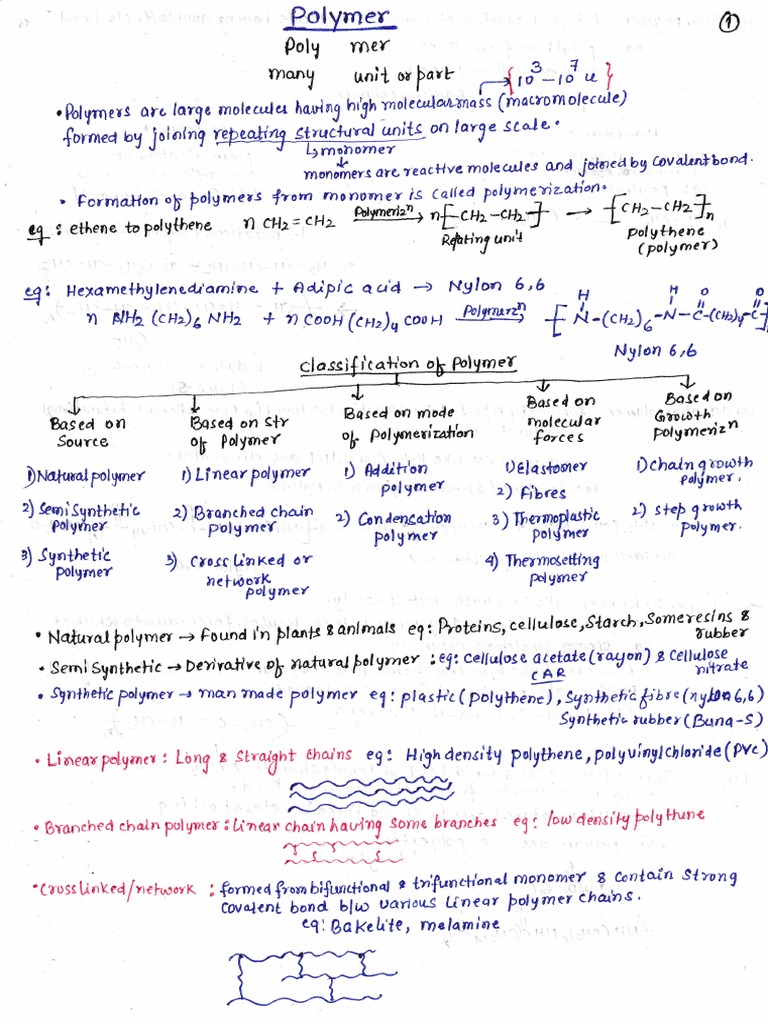 Polymer
①
Poly mer
many unit or part
{10³ – 10⁷ u}
• Polymers are large molecules having high molecular mass (macromolecule)
formed by joining repeating structural units on large scale.
↳ monomer
monomers are reactive molecules and joined by Covalent bond.
• Formation of polymers from monomer is called polymerization.
eg : ethene to polythene n CH2 = CH2 Polymerizⁿ → n[-CH2-CH2-] → [CH2-CH2]n
Repating unit Polythene
(polymer)
eg: Hexamethylenediamine + Adipic acid → Nylon 6,6
H H O O
n NH2 (CH2)6 NH2 + n COOH (CH2)4 COOH Polymerzⁿ → [N-(CH2)6-N-C-(CH2)4-C]
Nylon 6,6
Classification of Polymer
Based on Source
Based on Str of Polymer
Based on mode of Polymerization
Based on molecular forces
Based on Growth Polymerizⁿ
1) Natural polymer
2) Semi Synthetic polymer
3) Synthetic polymer
1) Linear polymer
2) Branched chain polymer
3) cross linked or network polymer
1) Addition polymer
2) Condensation polymer
1) elastomer
2) Fibres
3) Thermoplastic polymer
4) Thermosetting polymer
1) chain growth polymer.
2) Step growth polymer.
• Natural polymer → Found in plants & animals eg: Proteins, cellulose, Starch, Some resins & rubber
• Semi Synthetic → Derivative of natural polymer : eg: Cellulose acetate (rayon) & Cellulose nitrate
CAR
• Synthetic polymer → man made polymer eg: plastic (polythene), Synthetic fibre (nylon 6,6)
Synthetic rubber (Buna-S)
• Linear polymer : Long & Straight chains eg: High density polythene, polyvinyl chloride (PVC)
• Branched chain polymer : linear chain having some branches eg: low density polythene
• Cross linked/network : formed from bifunctional & trifunctional monomer & contain strong
covalent bond b/w various linear polymer chains.
eg: Bakelite, melamine